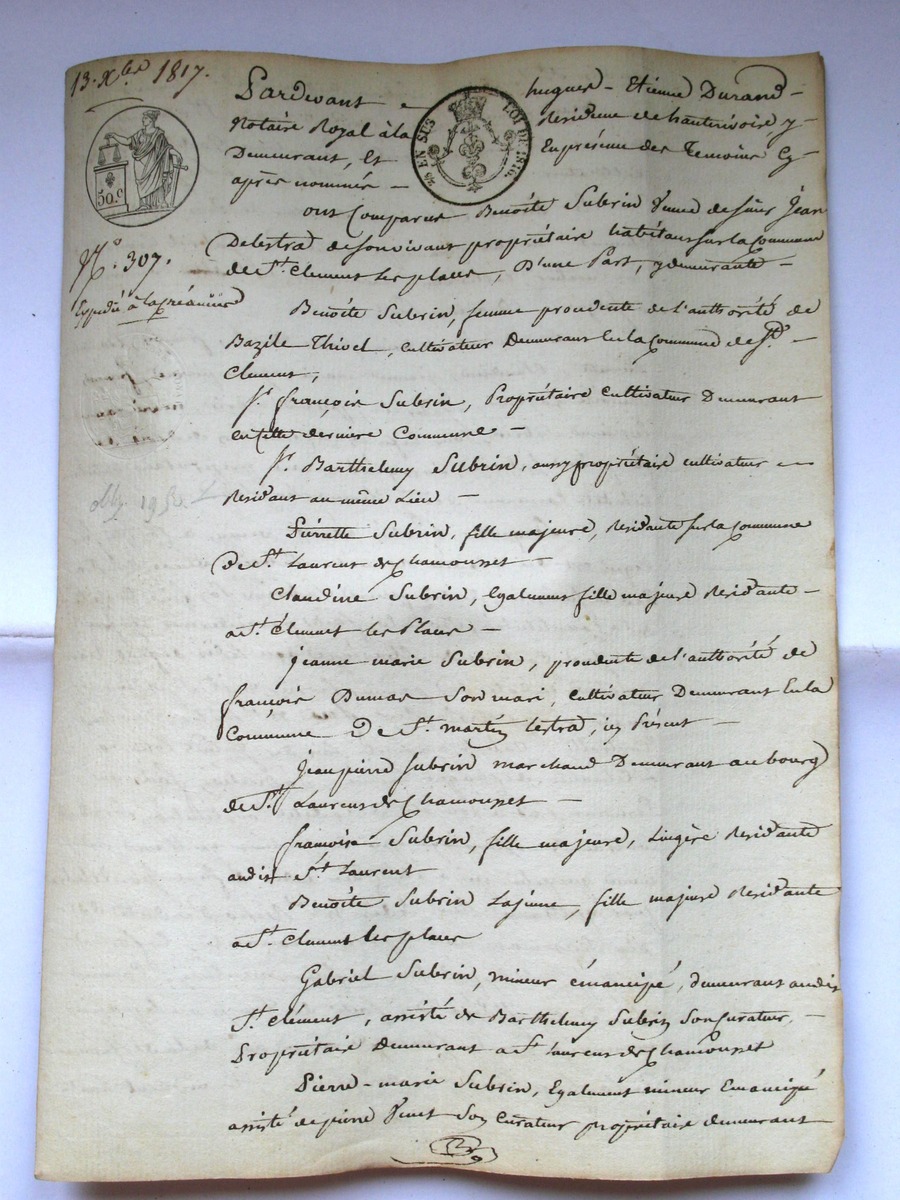 13. Xbre 1817.
Pardevant hugues - Etienne Durand -
Notaire Royal à la Residence de hauterivoire y
Demeurant, Et En présence des Temoins Cy
après nommés -
25 EN SUS LOI DE 1816.
50.c
N.o 307.
Expédié à la créancière
ont Comparus Benoîte Subrin Veuve de sieur Jean
Delestra de son vivant propriétaire habitant sur la Commune
de St. Clement les places, D'une Part, y demeurante -
Benoîte Subrin, femme procedente de l'authorité de
Bazile Thivel, cultivateur Demeurant En la Commune de St. -
Clement,
Sr. françois Subrin, Propriétaire Cultivateur Demeurant
en cette derniere Commune -
Sr. Barthelemy Subrin, aussy propriétaire cultivateur
Residant au même Lieu -
Pierrette Subrin, fille majeure, Residante sur la Commune
De St. Laurent de Chamousset -
Claudine Subrin, Egalement fille majeure Residante -
a St. Clement les Places -
obl. 1950.
Jeanne marie Subrin, procedente de l'authorité de
françois Dumas Son mari, Cultivateur Demeurant En la
Commune De St. martin lestra, icy Présent -
Jean pierre Subrin marchand Demeurant au bourg
de St. Laurent de Chamousset -
françoise Subrin, fille majeure, Lingère Residante
audit St. Laurent
Benoîte Subrin La jeune, fille majeure Residante
a St. Clement les places
Gabriel Subrin, mineur émancipé, demeurant audit
St. Clément, assisté de Barthelemy Subrin Son Curateur, -
Propriétaire Demeurant a St. Laurent de Chamousset
Pierre - marie Subrin, Egalement mineur Emancipé
assisté de pierre Venet Son Curateur propriétaire demeurant